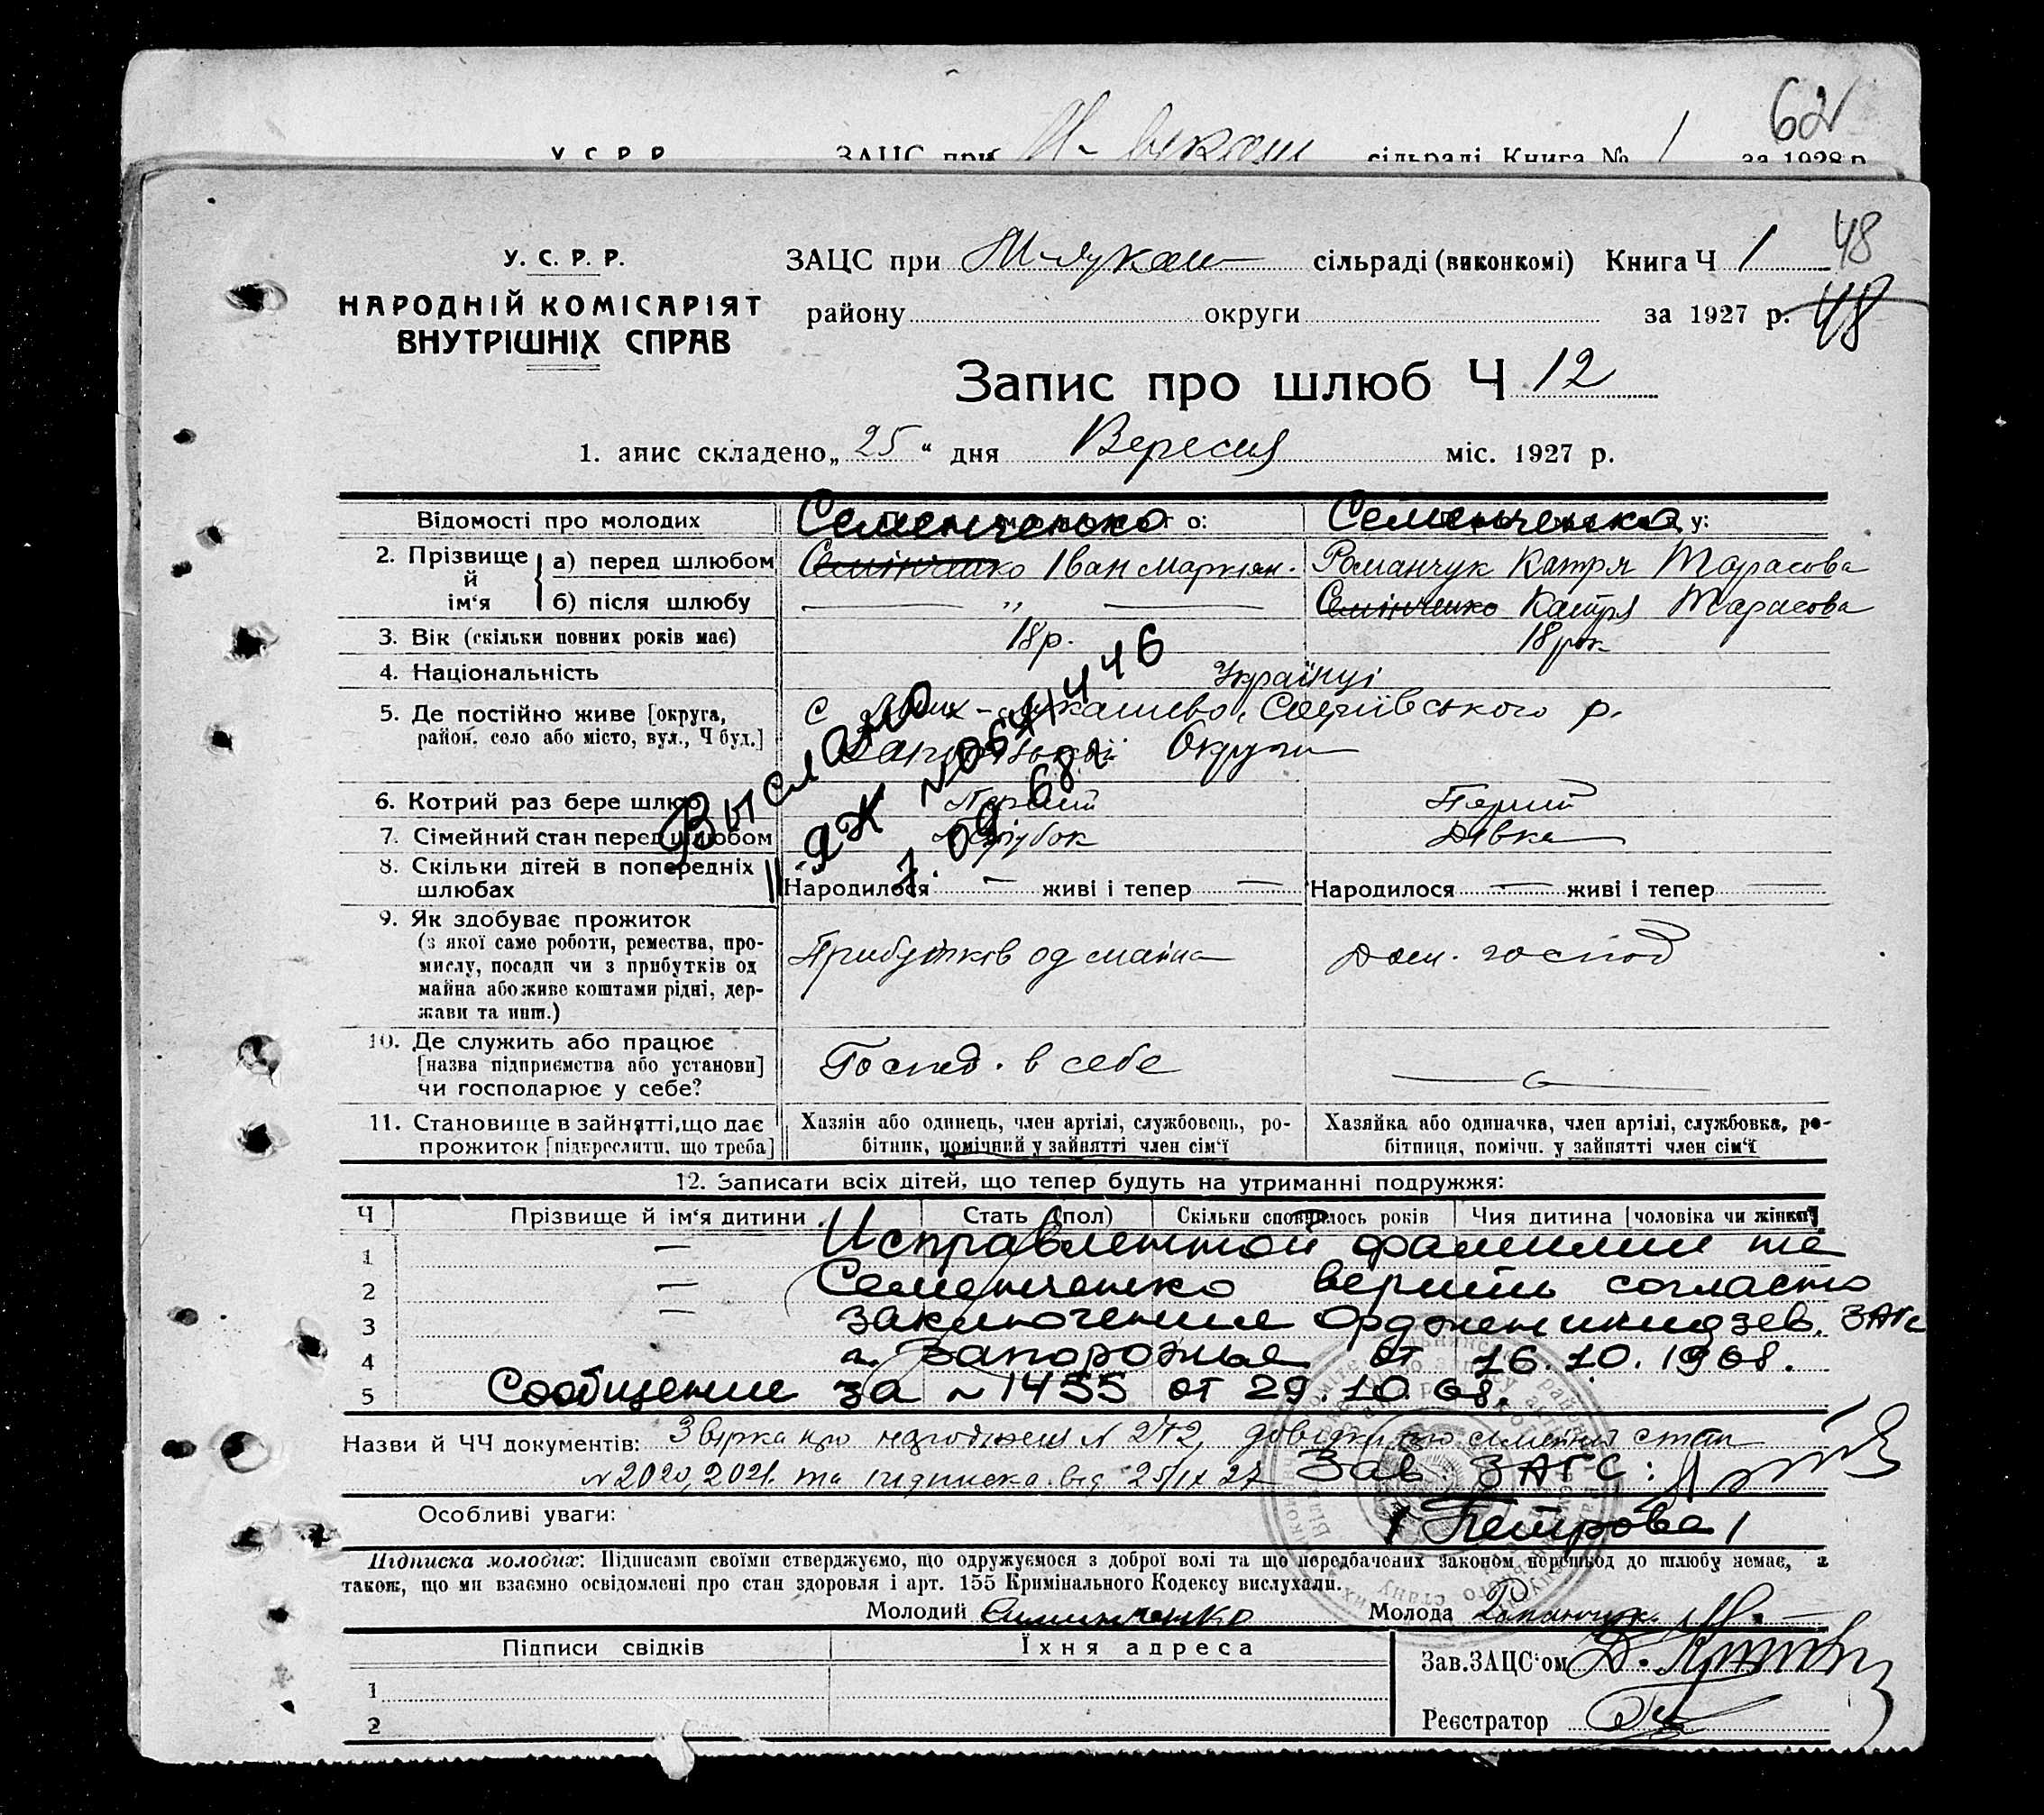 62
У. С. Р. Р. ЗАЦС при сільраді Книга № 1 за 1928 р.
У. С. Р. Р.
НАРОДНІЙ КОМІСАРІЯТ
ВНУТРІШНІХ СПРАВ
ЗАЦС при М-Лукаш сільраді (виконкомі) Книга Ч 1 48
району округи за 1927 р. 48
Запис про шлюб Ч 12
1. апис складено „25“ дня Вересня міс. 1927 р.
Відомості про молодих Семенченко го: Семенченко у:
2. Прізвище й ім‘я а) перед шлюбом Семінченко Іван Маркіян. Романчук Катря Тарасова
б) після шлюбу — „ — Семінченко Катря Тарасова
3. Вік (скільки повних років має) 18 р. 18 рок
4. Національність Українці
5. Де постійно живе [округа, район, село або місто, вул., Ч буд.] с Лукашево, Софіївського р.
Округи
6. Котрий раз бере шлюб Перший Перший
7. Сімейний стан перед шлюбом Парубок Дівка
8. Скільки дітей в попередніх шлюбах Народилося — живі і тепер — Народилося — живі і тепер —
Выслано
ЯЖ № 0641446
7. 09 68 г
9. Як здобуває прожиток
(з якої саме роботи, ремества, про-
мислу, посади чи з прибутків од
майна або живе коштами рідні, дер-
жави та инш.)
Прибутків од майна Дом. господ
10. Де служить або працює
[назва підприємства або установи]
чи господарює у себе?
Господ. в себе —
11. Становище в зайнятті, що дає
прожиток [підкреслити, що треба]
Хазяїн або одинець, член артілі, службовець, ро-
бітник, помічний у зайнятті член сім‘ї
Хазяйка або одиначка, член артілі, службовка, ро-
бітниця, помічн. у зайнятті член сім‘ї
12. Записати всіх дітей, що тепер будуть на утриманні подружжя:
Ч Прізвище й ім‘я дитини Стать (пол) Скільки сповнилось років Чия дитина [чоловіка чи жінки]
1 — Исправленной фамилии на
2 — Семенченко верить согласно
3 — заключения Орджоникидзев. ЗАГС
4 г. Запорожья от 16.10.1968.
5 Сообщение за № 1455 от 29.10.68.
Назви й ЧЧ документів: Звірка про народження № 272, довідки про сімейний стан
№ 2020, 2021 та підписка від 25/IX 27 Зав. ЗАГС:
Особливі уваги: / Петрова /
Підписка молодих: Підписами своїми стверджуємо, що одружуємося з доброї волі та що передбачених законом перешкод до шлюбу немає, а
також, що ми взаємно освідомлені про стан здоровля і арт. 155 Кримінального Кодексу вислухали.
Молодий Семинченко Молода Романчук
Підписи свідків Їхня адреса
Зав. ЗАЦС‘ом
1
2
Реєстратор